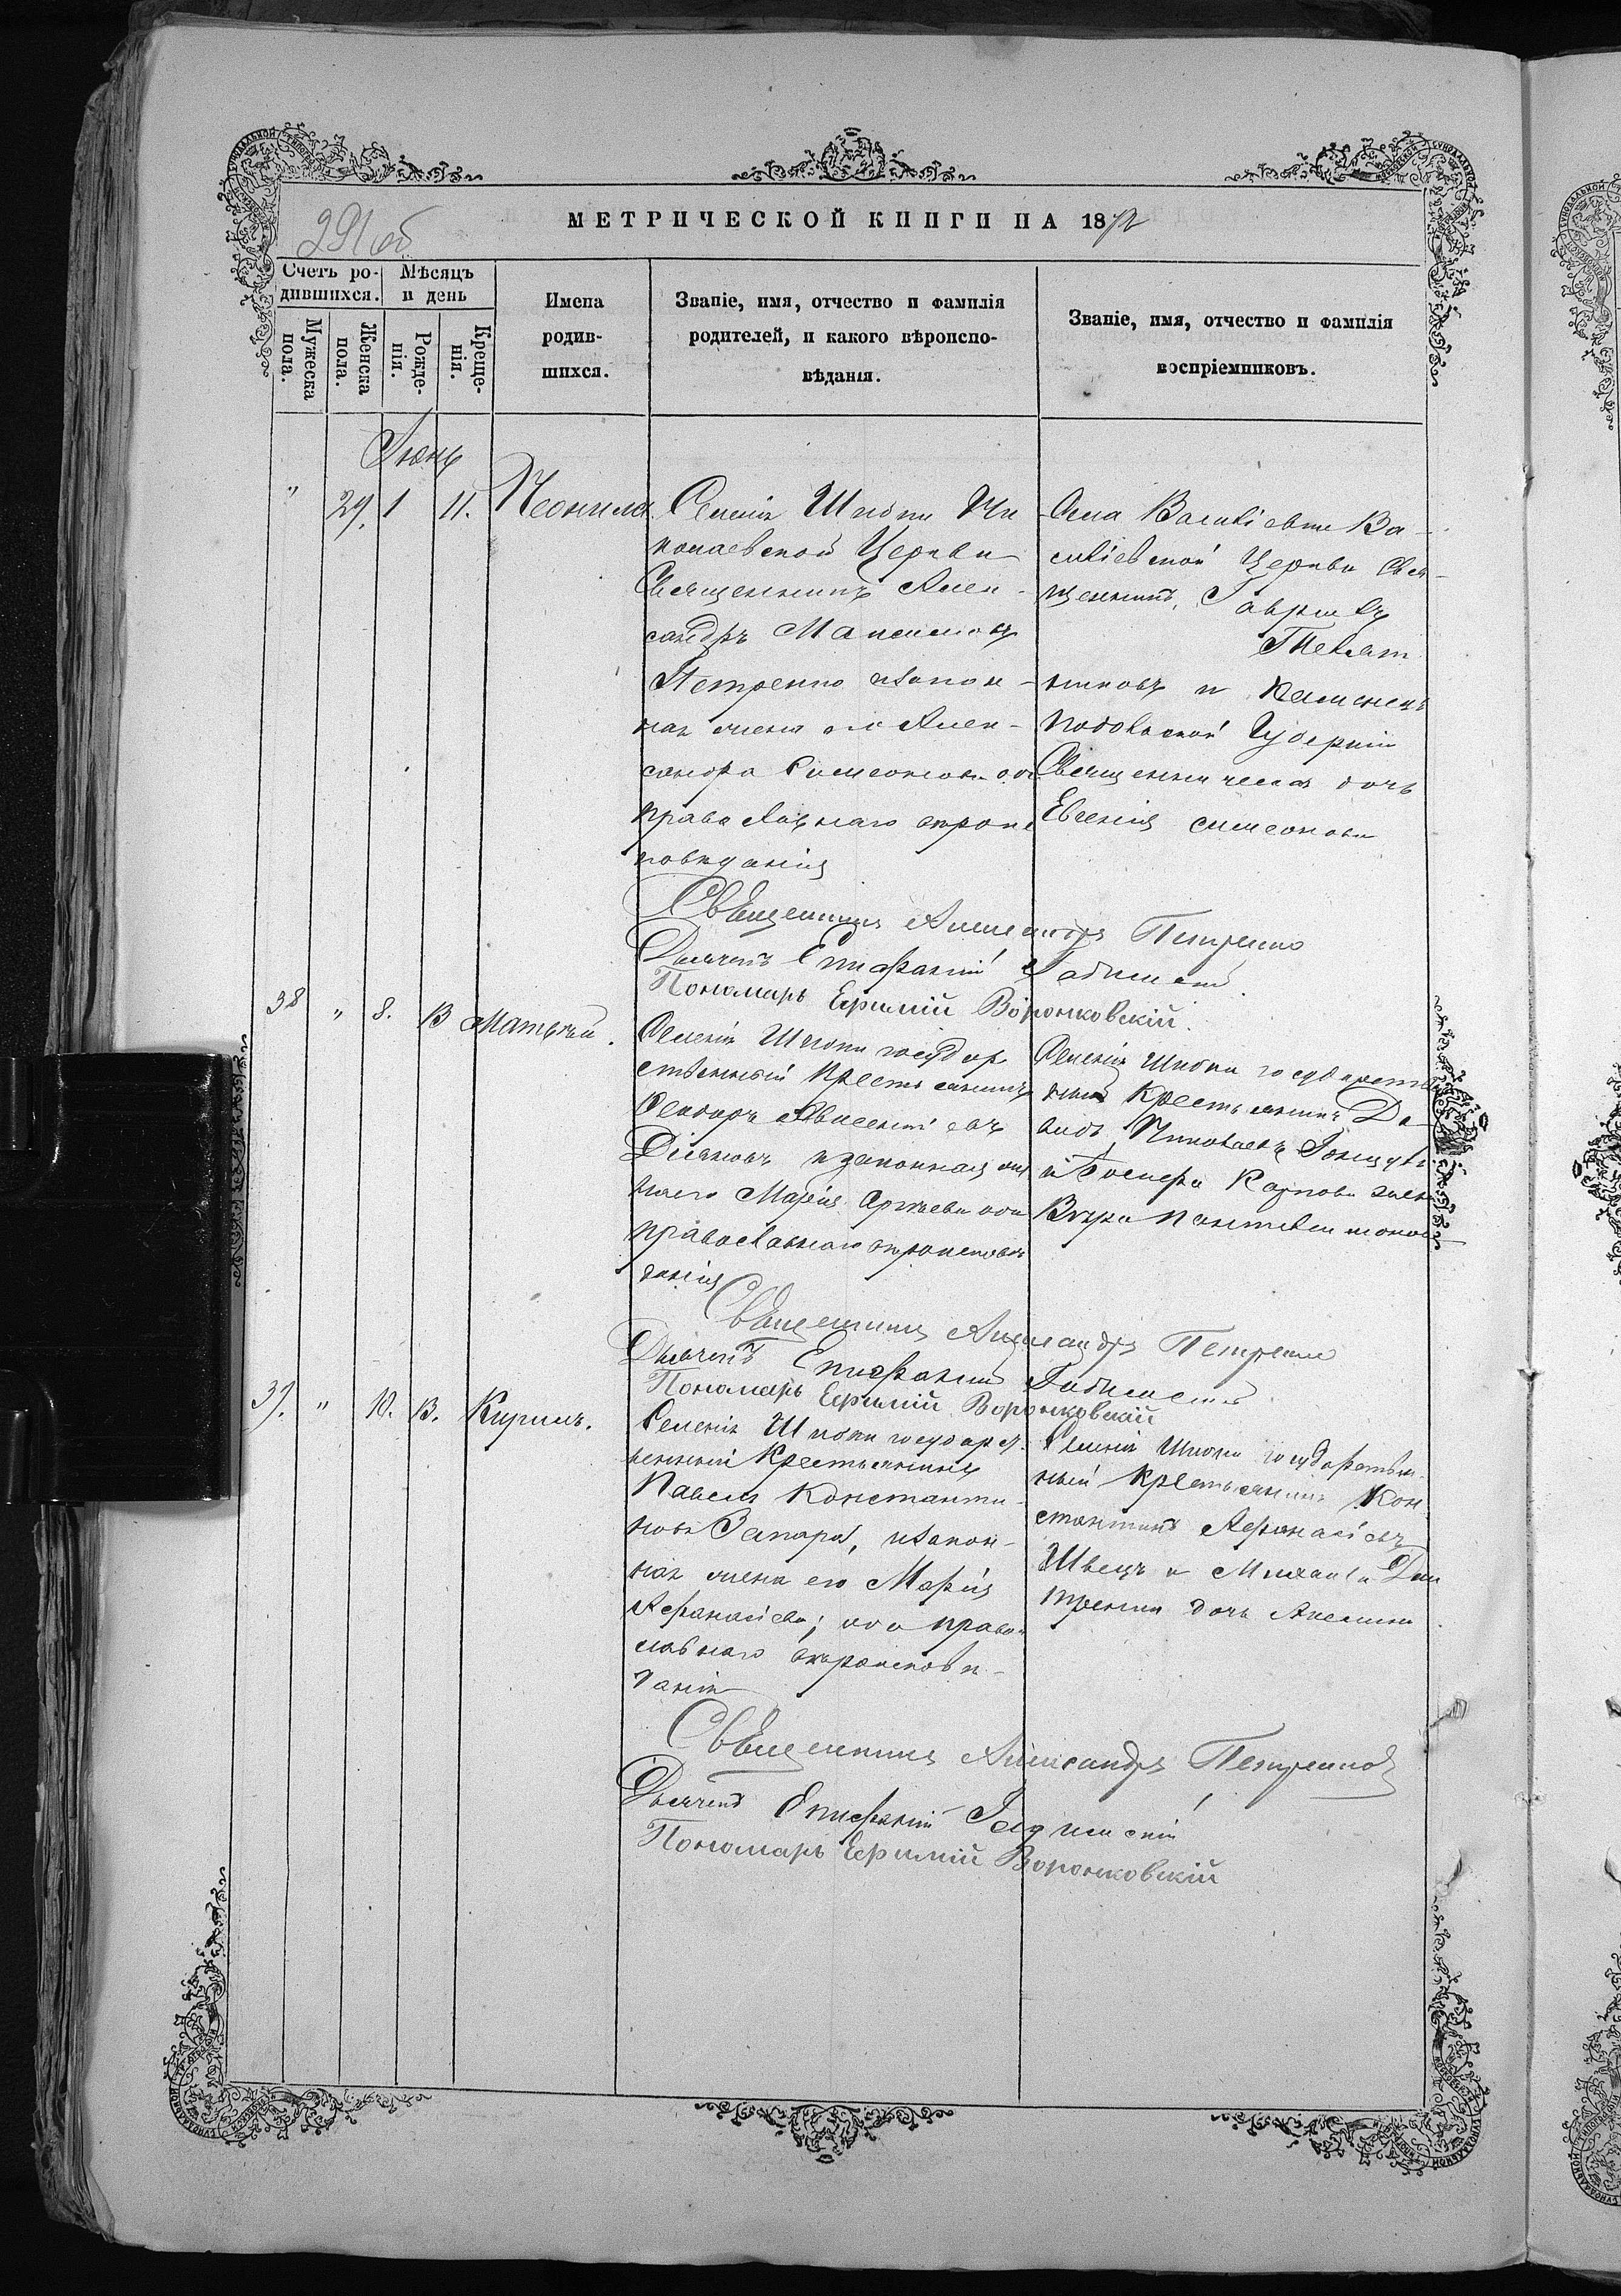 291 об
МЕТРИЧЕСКОЙ КНИГИ НА 1872
Счетъ ро-
дившихся.
Мѣсяцъ
и день
Мужеска
пола.
Женска
пола.
Рожде-
нія.
Креще-
нія.
Имена
родив-
шихся.
Званіе, имя, отчество и фамилія
родителей, и какого вѣроиспо-
вѣданія.
Званіе, имя, отчество и фамилія
воспріемниковъ.
Іюнь
" 29. 1 11. Неонила
Селенія Шпопи Ни
колаевской Церкви
Священникъ Алек-
сандръ Максимовъ
Петренко и закон-
ная жена его Алек-
сандра Симеонова оба
православнаго вѣроис
повѣданія
Села Василіевки Ва-
силіевской Церкви Свя-
щенникъ Гавріилъ
никовъ и Каменец
Подольской Губерніи
Священническая дочь
Евгенія Симеонова
Священникъ Александръ Петренко
Дьячекъ Епифаній
Пономарь Ефимій Воронковскій.
38 " 8. 13 Матѳѣй.
Селенія государ
ственный Крестьянинъ
Ѳеодоръ
и законная же
на его Марія оба
православнаго вѣроисповѣ
данія
Селенія государствен
ный Крестьянинъ Да-
видъ Николаевъ
и Карпова
Вѣра
Священникъ Александръ Петренко
Дьячекъ Епифаній
Пономарь Ефимій Воронковскій
39. " 10. 13. Кирилъ.
Селенія государст
венный Крестьянинъ
Павелъ Константи-
новъ Запара, и закон-
ная жена его Марія
Афанасіева; оба право
славнаго вѣроисповѣ-
данія
Селенія государствен
ный Крестьянинъ Кон
стантинъ Афанасіевъ
Швецъ и Михаила Дми
тренки дочь Акелина
Священникъ Александръ Петренко
Дьячекъ Епифаній
Пономарь Ефимій Воронковскій